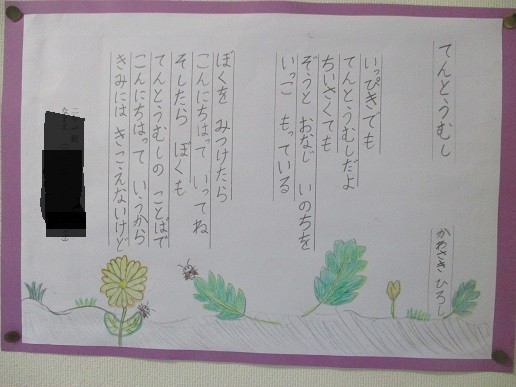 てんとうむし
かわさき ひろし
いっぴきでも
てんとうむしだよ
ちいさくても
ぞうと おなじ いのちを
いっこ もっている
ぼくを みつけたら
こんにちはって いってね
そしたら ぼくも
てんとうむしの ことばで
こんにちはって いうから
きみには きこえないけど